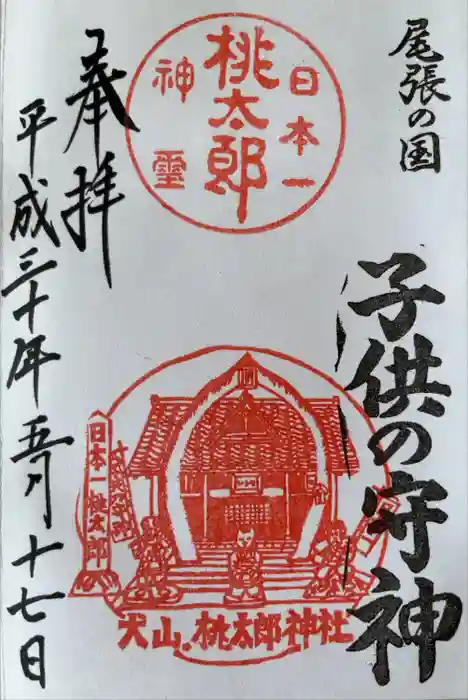 尾張の国
子供の守神
日本一
桃太郎
神霊
奉拝
平成三十年五月十七日
日本一桃太郎
犬山.桃太郎神社